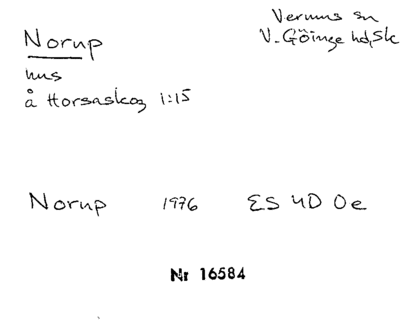 Norup
Verums sn
V. Göinge hd, Sk
hus
å Horsaskog 1:15
Norup 1976 ES 4D 0e
Nr 16584